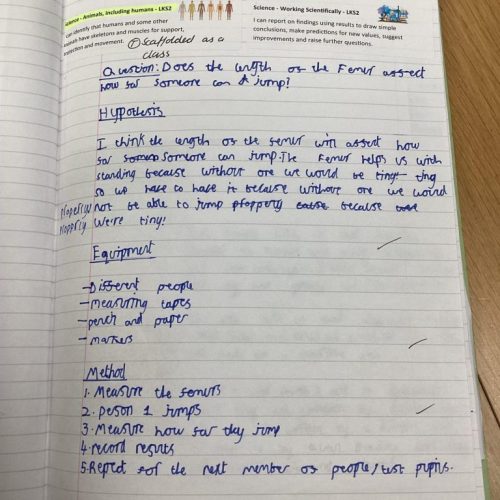 Science - Animals, including humans - LKS2
I can identify that humans and some other
animals have skeletons and muscles for support,
protection and movement.
Scaffolded as a
class
Science - Working Scientifically - LKS2
I can report on findings using results to draw simple
conclusions, make predictions for new values, suggest
improvements and raise further questions.
Question: Does the length of the Femur affect
how far someone can jump?
Hypothesis
I think the length of the femur will affect how
far someone can jump. The Femur helps us with
standing because without one we would be tiny
so we have to have it because without one we would
not be able to jump propperly because
we're tiny!
properly
propperly
Equipment
-Different people
-measuring tapes
-pencil and paper
-markers
Method
1. Measure the femurs
2. person 1 jumps
3. Measure how far they jump
4. record results
5. Repeat for the next member of people/test pupils.